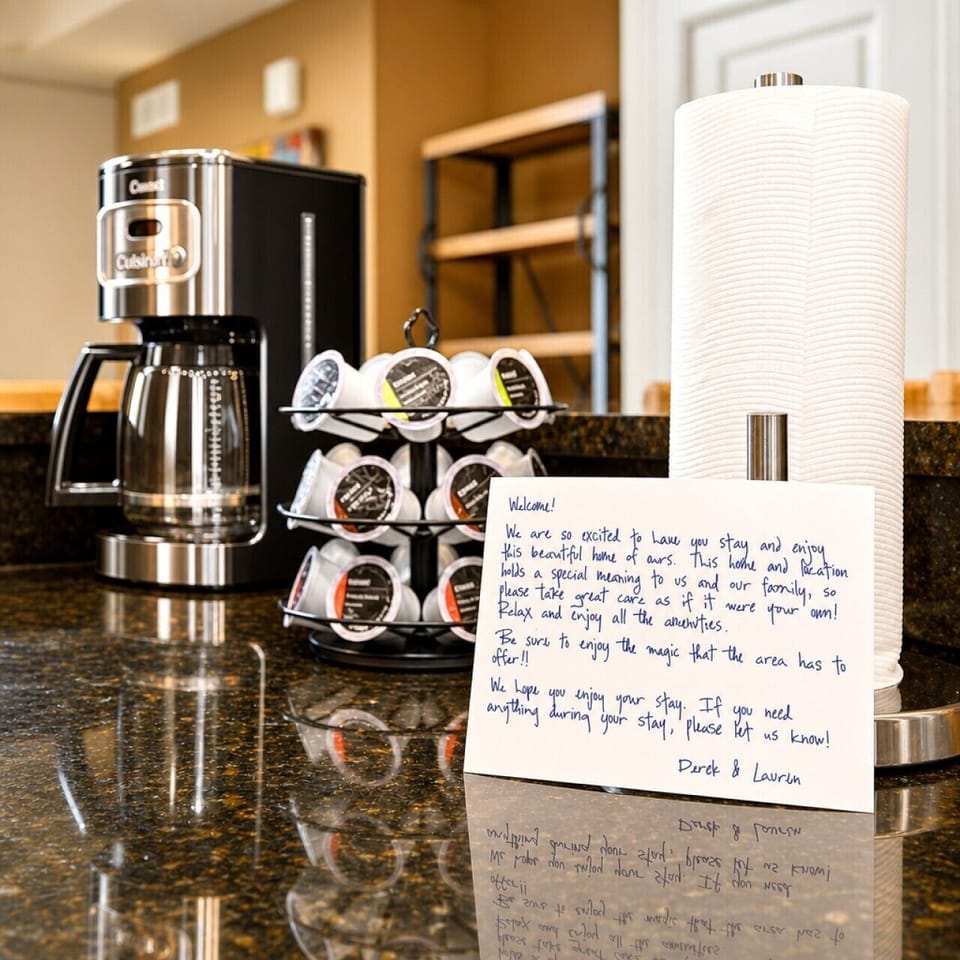 Cuisinart
Welcome!
We are so excited to have you stay and enjoy
this beautiful home of ours. This home and location
holds a special meaning to us and our family, so
please take great care as if it were your own!
Relax and enjoy all the amenities.
Be sure to enjoy the magic that the area has to
offer!!
We hope you enjoy your stay. If you need
anything during your stay, please let us know!
Derek & Lauren